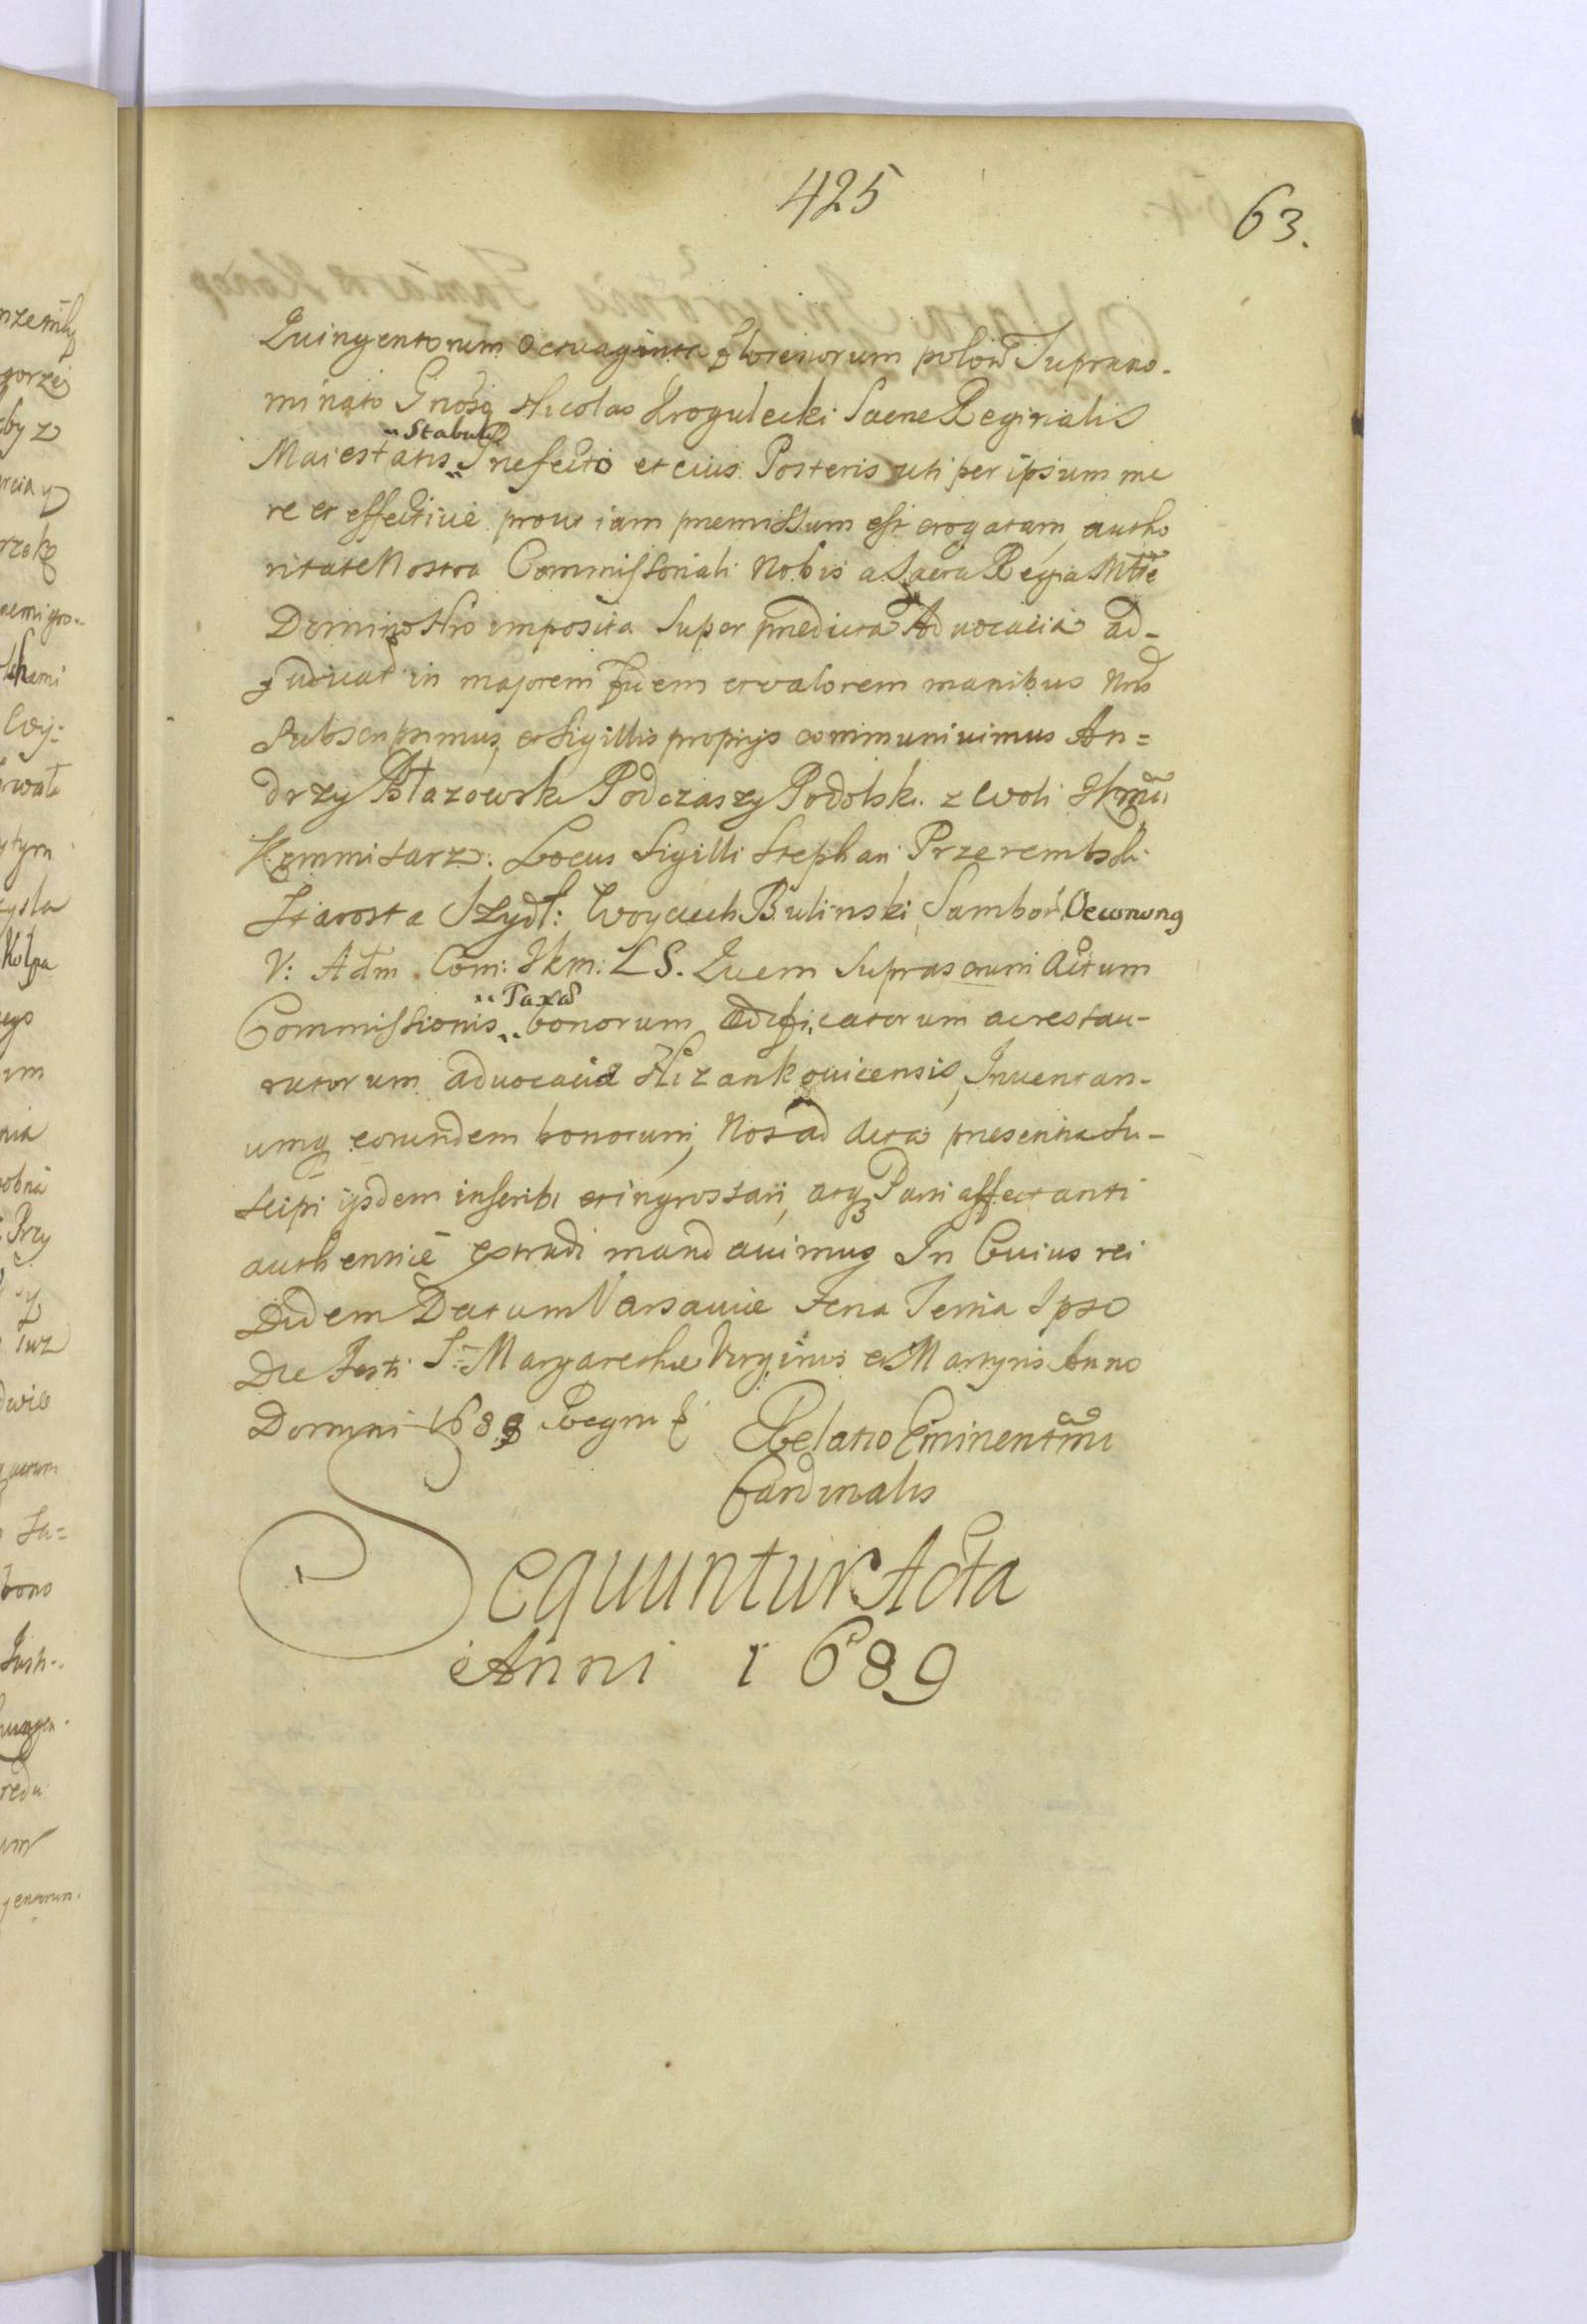 425
63.
Quingentorum Octuaginta florenorum polon Suprano-
minato Gnoso Nicolao Krogulecki Sacrae Reginalis
Maiestatis Stabuli Praefecto et eius Posteris uti per ipsum me
re et effective prout iam premissum est erogatam autho
ritate Nostra Commissoriali Nobis a Sacra Regia Mtte
Domino Nro imposita Super praedicta Advocatia ad-
judicat in majorem fidem et valorem manibus Nris
Subscripsimus, et Sigillis proprijs communivimus An=
drzy Błazowski Podczaszy Podolski z woli JKM
Kommisarz: Locus Sigilli Stephan Przerembski
Starosta Szydł: Woyciech Bulinski Sambor Oeconomy
V: Adm. Com: Jkm: L S. Quem Suprascrim Actum
Commissionis Taxas bonorum aedificatorum ac restau-
ratorum advocatia Nizankovicensis, Inventari-
umq eorundem bonorum, Nos ad Acta presentia Su-
scipi ijsdem inscribi et ingrossari, atq Parti affectanti
authentice extradi mandavimus In Cuius rei
Fidem Datum Varsaviae Feria Tertia Ipso
Die Festi S. Margarethae Virginis et Martyris Anno
Domini 1688 Regni
Relatio Eminentmi
Cardinalis
Sequuntur Acta
Anni 1689